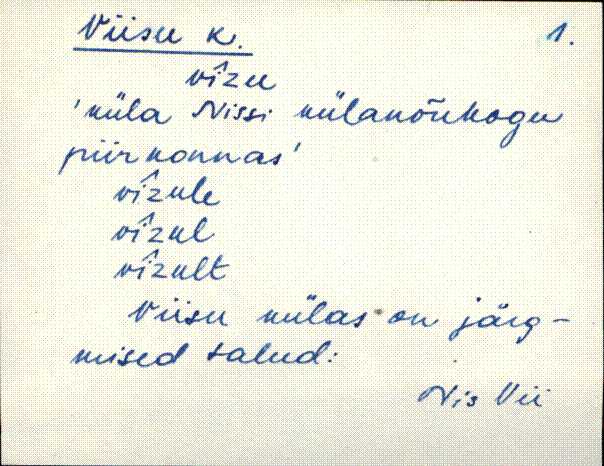 Viisu k. 1.
vîzu
'küla Nissi külanõukogu
piirkonnas'
vîzule
vîzul
vîzult
Viisu külas on järg-
mised talud:
Nis Vii